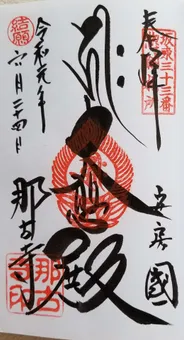 坂東三十三番
奉拝
安房國
大悲殿
結願
令和元年
六月二十四日
那古寺